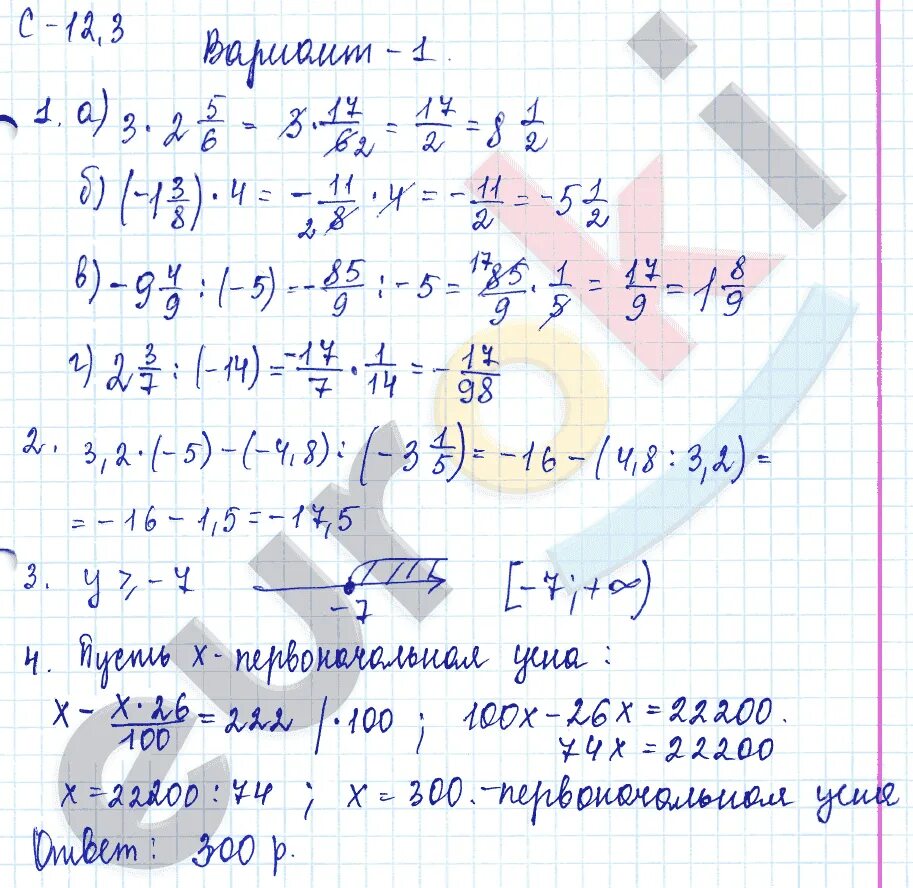 С-12,3
Вариант-1.
1. а) 3·2 5/6 = 3·17/6 2 = 17/2 = 8 1/2
б) (-1 3/8)·4 = -11/8 2 ·4 = -11/2 = -5 1/2
в) -9 4/9 : (-5) = -85/9 : -5 = 17 85/9 · 1/5 = 17/9 = 1 8/9
г) 2 3/7 : (-14) = -17/7 · 1/14 = -17/98
2. 3,2·(-5)-(-4,8):(-3 1/5) = -16-(4,8:3,2) =
= -16-1,5 = -17,5
3. y ≥ -7 -7 [-7;+∞)
4. Пусть х-первоначальная цена:
х - х·26/100 = 222 |·100 ; 100х-26х=22200.
74х=22200
х=22200:74 ; х=300.-первоначальная цена
Ответ: 300 р.
euroki